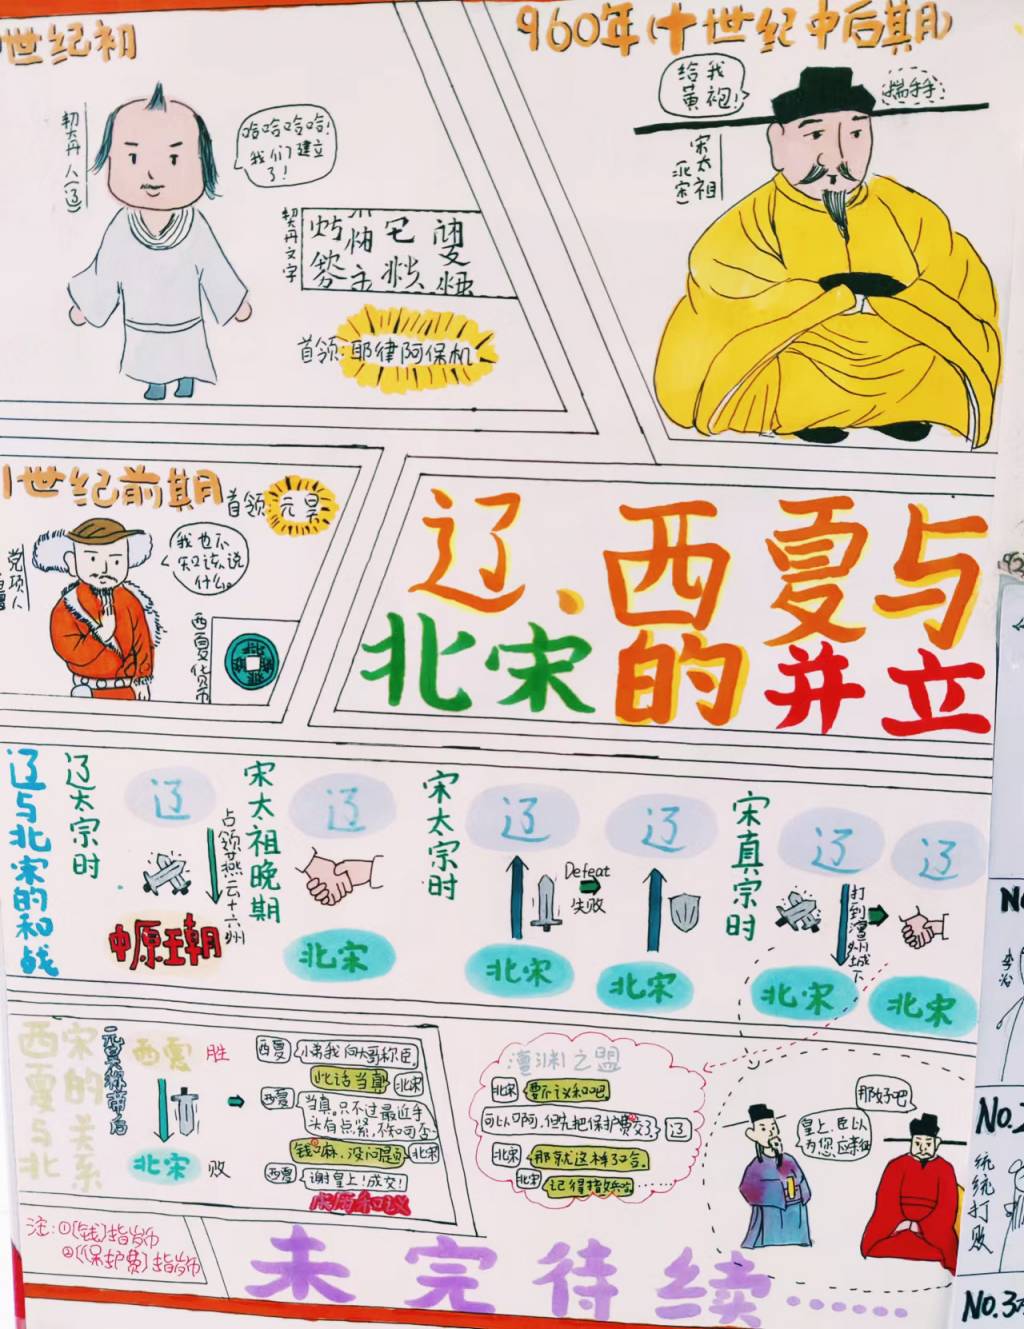 世纪初
960年(十世纪中后期)
契丹人(辽)
哈哈哈哈!
我们建立
了!
契丹文字
首领:耶律阿保机
给我
黄袍!
揣手手
宋太祖
(北宋)
1世纪前期
首领 元昊
党项人
我也不
知该说
什么。
西夏货币
辽、西夏与
北宋的并立
辽与北宋的和战
辽太宗时
辽
占领燕云十六州
中原王朝
宋太祖晚期
辽
北宋
宋太宗时
辽
Defeat
失败
北宋
辽
北宋
宋真宗时
辽
打到澶州城下
北宋
辽
北宋
西夏与北
宋的关系
元昊称帝后
西夏 胜
北宋 败
西夏 小弟我向大哥称臣,
此话当真 北宋
西夏 当真。只不过最近手
头有点紧,不知可否
钱嘛,没问题 北宋
西夏 谢皇上!成交!
庆历和议
澶渊之盟
北宋 要不议和吧。
可以啊,但先把保护费交了 辽
北宋 那就这样了哈。
北宋
那好吧
皇上,臣以
为您应亲征
注:①[钱]指岁币
②[保护费]指岁币
未完待续……
No.2
统统打败
No.3